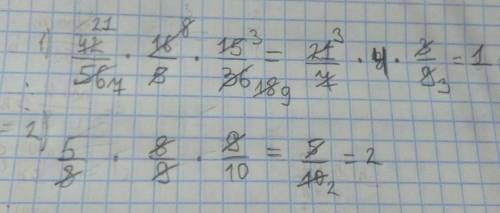 1) 42 21/56 7 · 16 8/8 · 15 3/36 18 9 = 21 3/7 · 4 · 3/9 3 = 1
= 2) 5/8 · 8/9 · 9/10 = 5/10 2 = 2